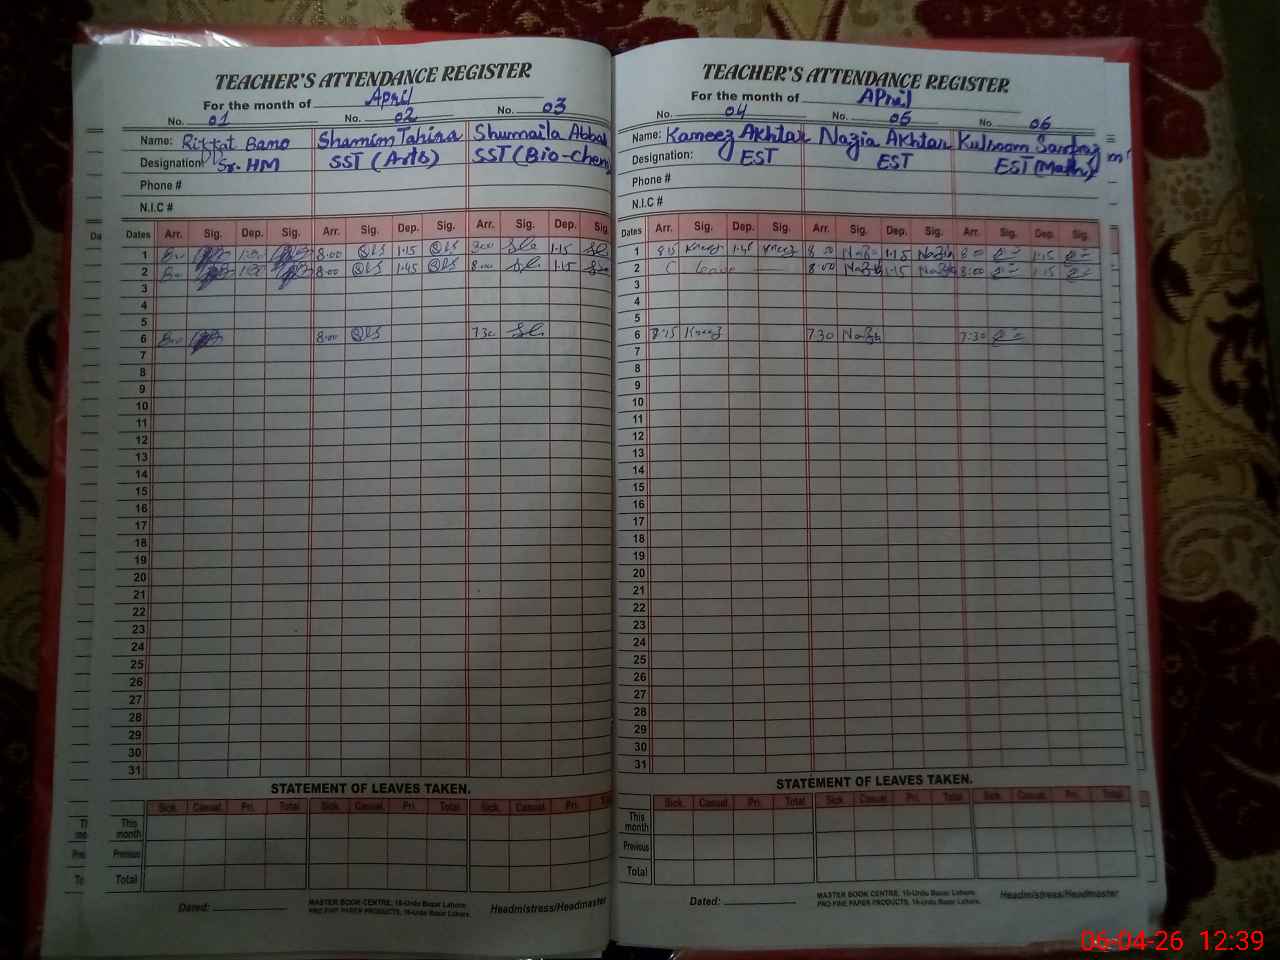 TEACHER'S ATTENDANCE REGISTER
For the month of April
No. 01 No. 02 No. 03
Name: Riffat Bano Shamim Tahira Shumaila Abbas
Designation Sr. HM SST (Arts) SST (Bio-Chem)
Phone #
N.I.C #
Dates Arr. Sig. Dep. Sig. Arr. Sig. Dep. Sig. Arr. Sig. Dep. Sig.
1 8:00 1:15 8:00 1:15
2 8:00 1:45 8:00 1:15
3
4
5
6 8:00 730
7
8
9
10
11
12
13
14
15
16
17
18
19
20
21
22
23
24
25
26
27
28
29
30
31
STATEMENT OF LEAVES TAKEN.
Sick. Casual. Pri. Total Sick. Casual. Pri. Total Sick. Casual. Pri.
This month
Previous
Total
Dated:
MASTER BOOK CENTRE, 16-Urdu Bazar Lahore.
PRO FINE PAPER PRODUCTS, 16-Urdu Bazar Lahore.
Headmistress/Headmaster
TEACHER'S ATTENDANCE REGISTER
For the month of April
No. 04 No. 05 No. 06
Name: Kaneez Akhtar Nazia Akhtar Kulsoom Sarfraz
Designation: EST EST EST (Math)
Phone #
N.I.C #
Dates Arr. Sig. Dep. Sig. Arr. Sig. Dep. Sig. Arr. Sig. Dep. Sig.
1 8:15 Kaneez 8:00 1:15 8:00 1:15
2 C leave 8:00 1:15 8:00 1:15
3
4
5
6 8:15 Kaneez 7:30 7:30
7
8
9
10
11
12
13
14
15
16
17
18
19
20
21
22
23
24
25
26
27
28
29
30
31
STATEMENT OF LEAVES TAKEN.
Sick. Casual. Pri. Total Sick. Casual. Pri. Total Sick. Casual. Pri. Total
This month
Previous
Total
Dated:
MASTER BOOK CENTRE, 16-Urdu Bazar Lahore.
PRO FINE PAPER PRODUCTS, 16-Urdu Bazar Lahore.
Headmistress/Headmaster
06-04-26 12:39